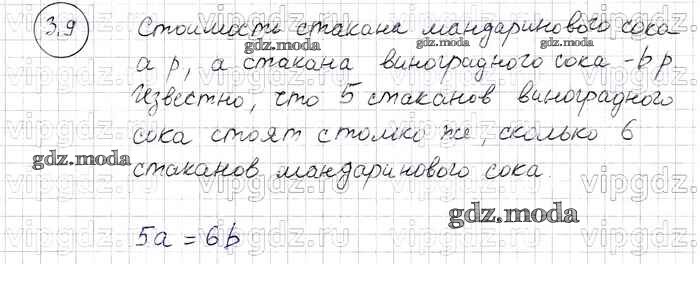 3.9 Стоимость стакана мандаринового сока
а р, а стакана виноградного сока - b р.
Известно, что 5 стаканов виноградного
сока стоят столько же, сколько 6
стаканов мандаринового сока.
5a = 6b
gdz.moda
gdz.moda
gdz.moda
gdz.moda
vipgdz.ru